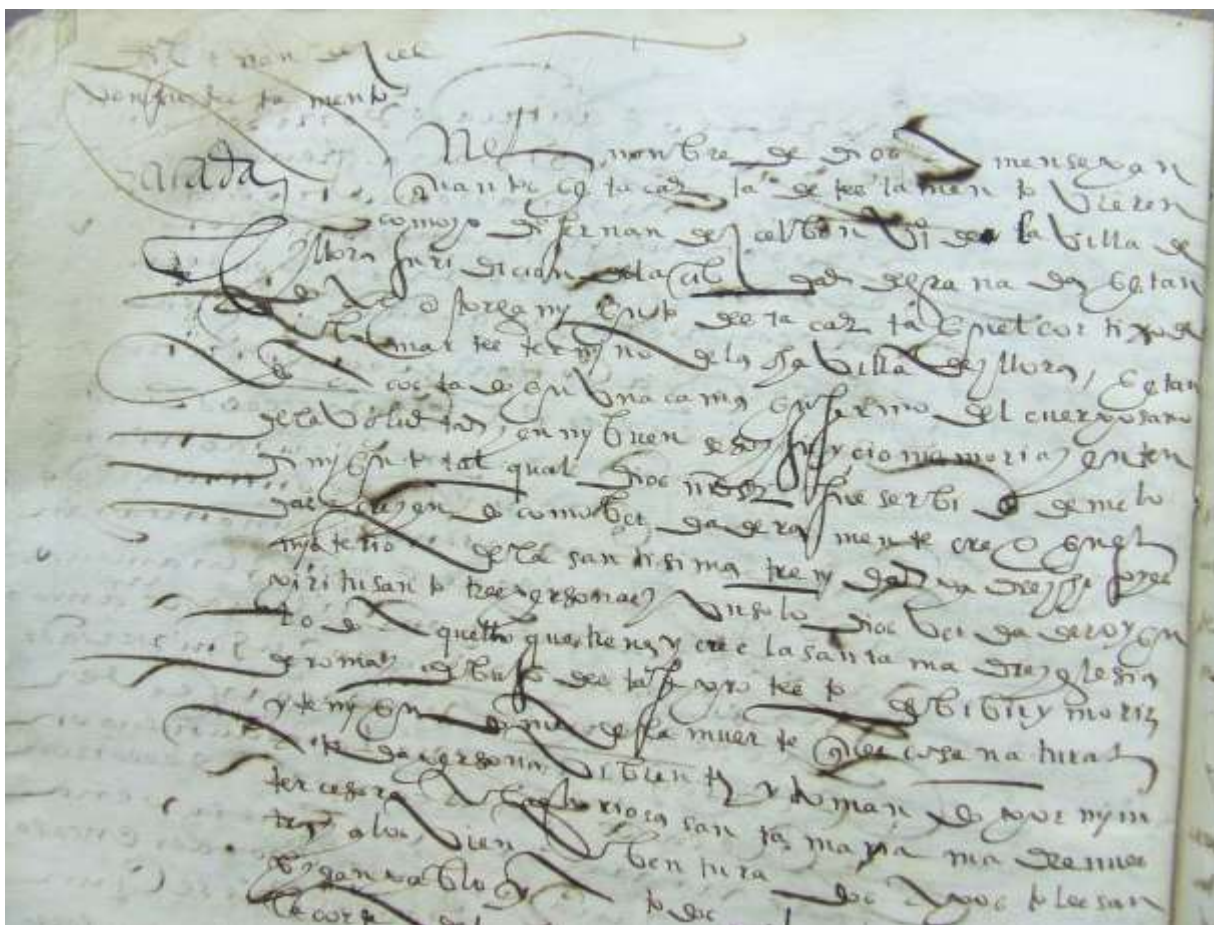 di fernan del cel
von su testamento
sacada
En el nonbre de dios Amen sepan
quantos esta carta de testamento vieren
como yo di fernan del celbon vº de la villa de
yllora juridicion de la cibdad de granada estan
do al otorgamyento desta carta en el cortixo de
termyno de la dha villa de yllora, estan
do acostado en una cama enfermo del cuerpo sano
de la voluntad, en my buen seso juycio memoria, enten
dimyento tal qual dios nro sr fue serbido de me lo
dar creyendo como berdaderamente creo en el
mysterio de la santisima trenydad padre hijo, espi
ritu santo tres personas, un solo dios berdadero y en
todo aquello que tiene y cree la santa madre yglesia
de roma, debaxo desta fe protesto de bibir y morir
y temyendome de la muerte ques cosa natural
a toda persona bibiente, y tomando por my in
tercesora a la gloriosa santa maria madre de nues
tro, a los bien abenturados apostoles san
p, san pablo, todos
la corte del